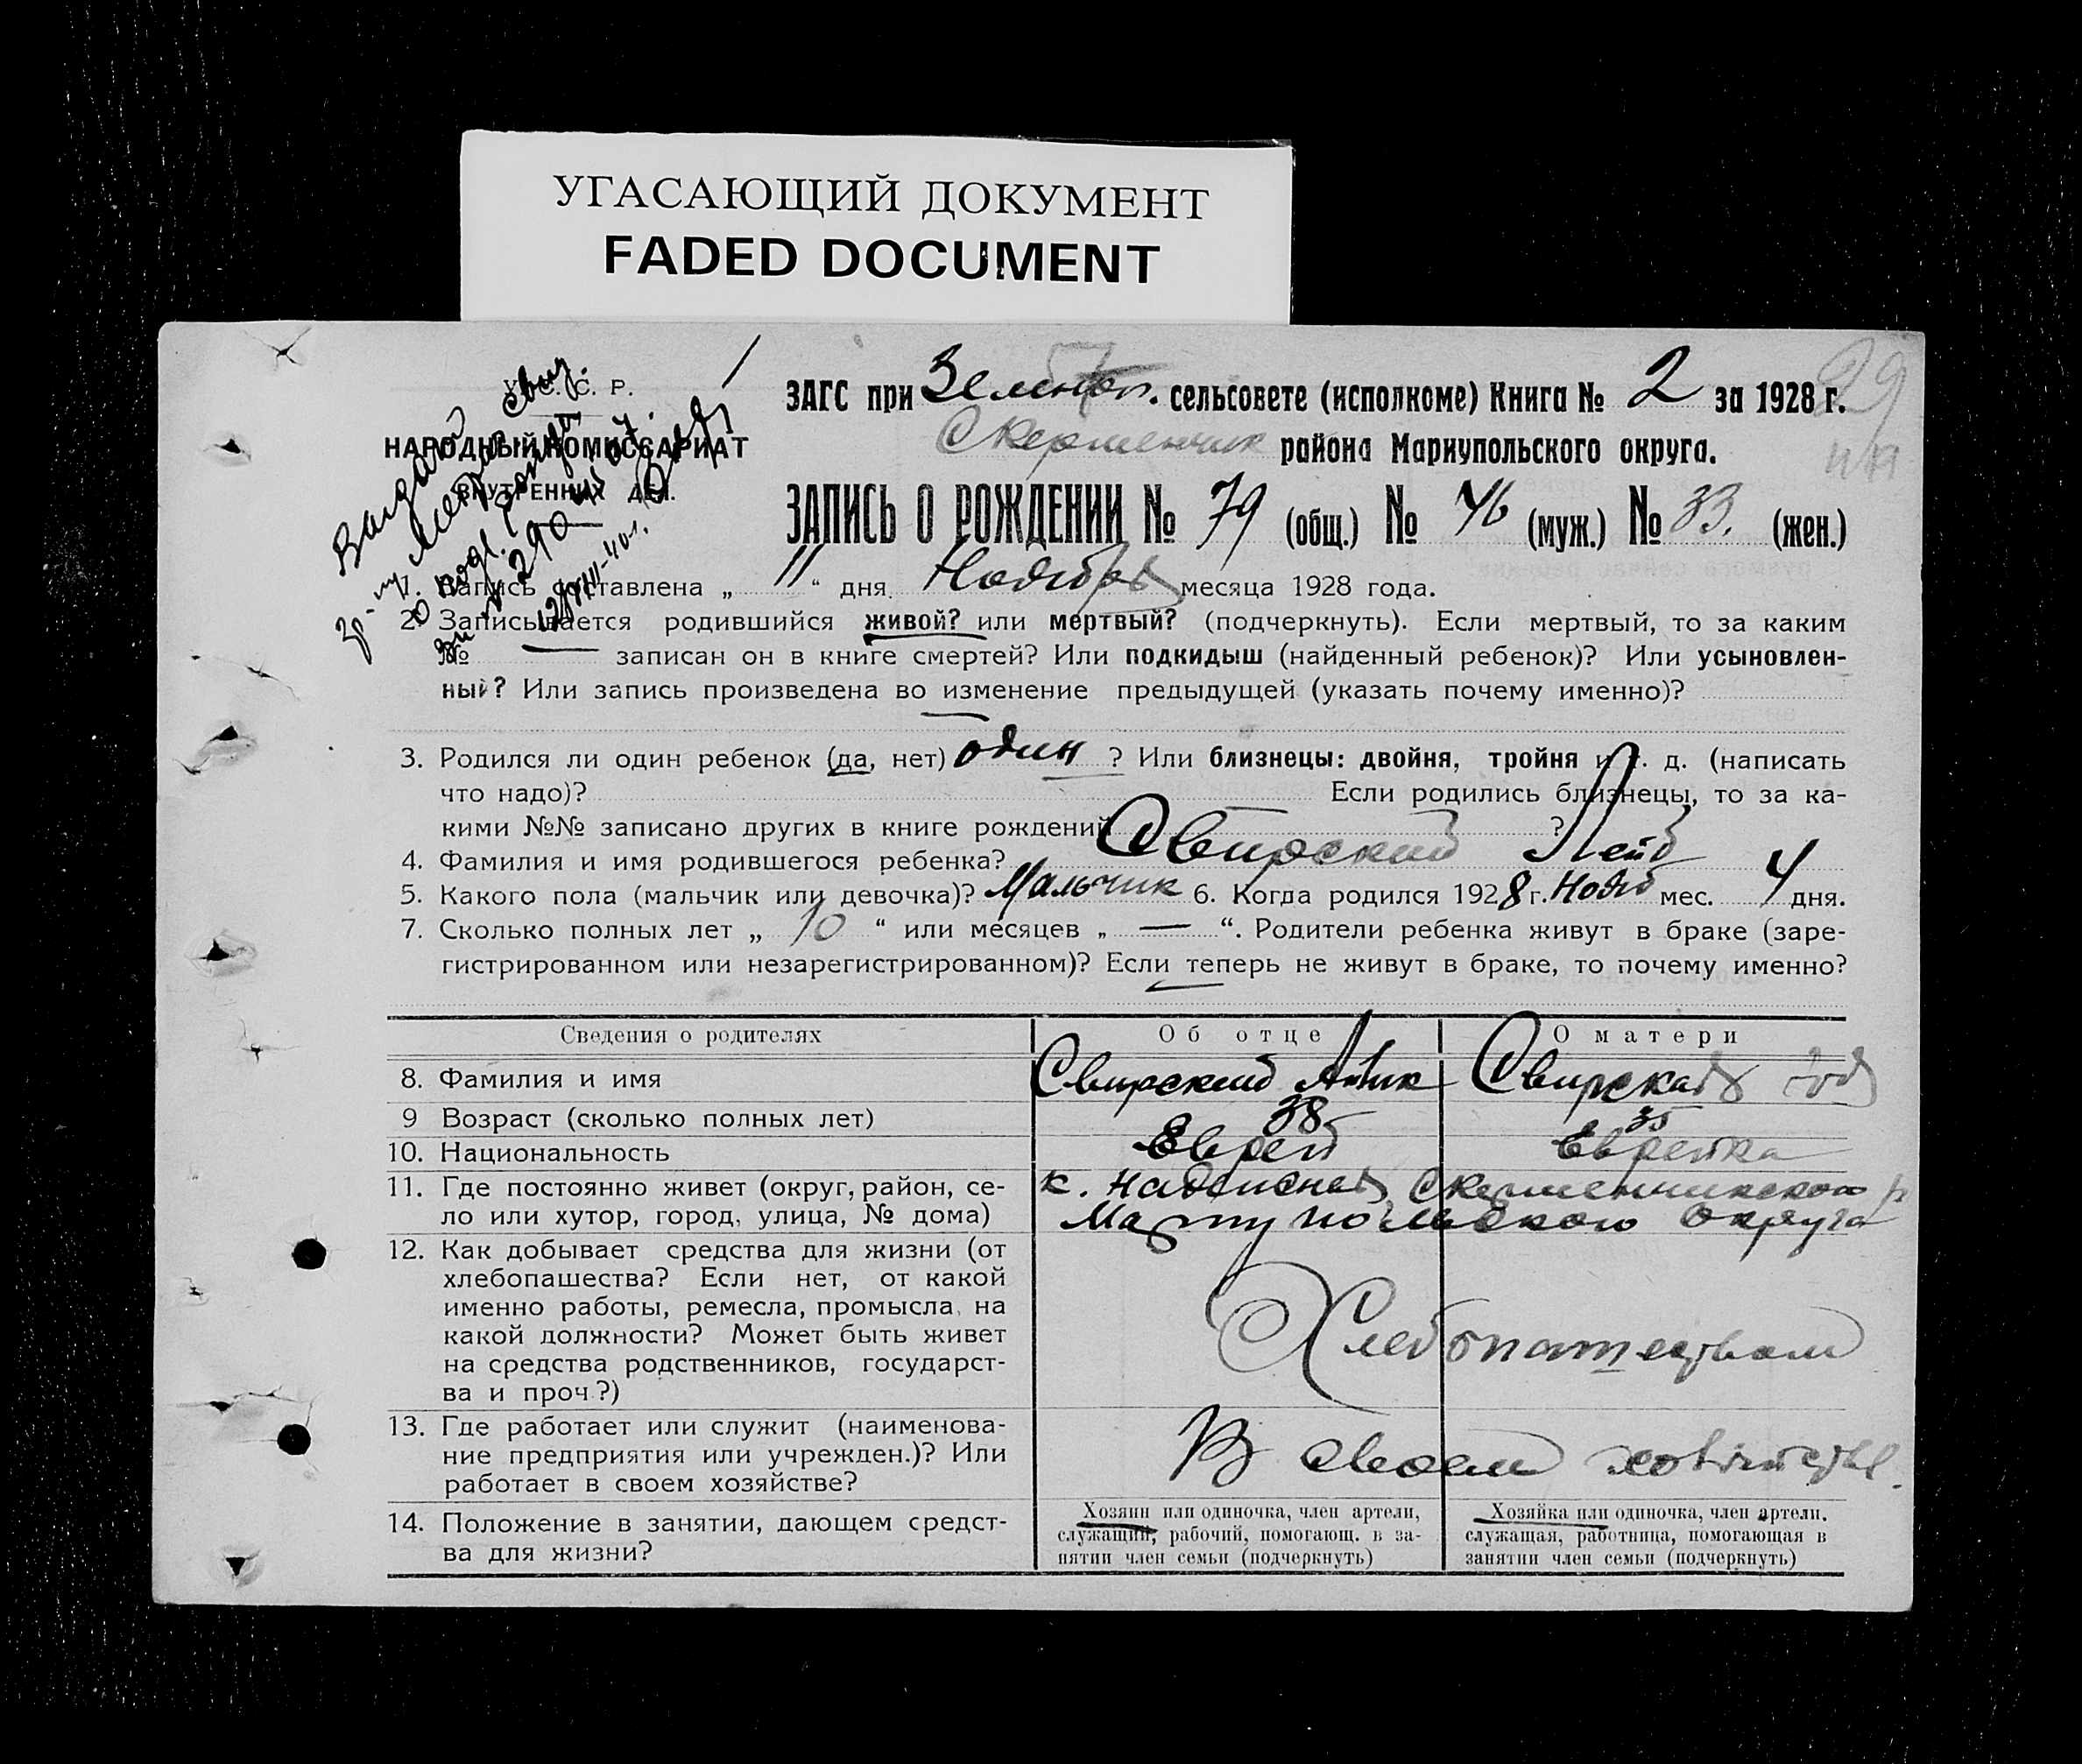 УГАСАЮЩИЙ ДОКУМЕНТ
FADED DOCUMENT
У. С. С. Р.
НАРОДНЫЙ КОМИССАРИАТ
ВНУТРЕННИХ ДЕЛ.
29
ЗАГС при сельсовете (исполкоме) Книга № 2 за 1928 г.
района Мариупольского округа.
ЗАПИСЬ О РОЖДЕНИИ № 79 (общ.) № 46 (муж.) № 33. (жен.)
1. Запись составлена „ 11 “ дня Ноября месяца 1928 года.
2. Записывается родившийся живой? или мертвый? (подчеркнуть). Если мертвый, то за каким
№ — записан он в книге смертей? Или подкидыш (найденный ребенок)? Или усыновлен-
ный? Или запись произведена во изменение предыдущей (указать почему именно)?
3. Родился ли один ребенок (да, нет) один ? Или близнецы: двойня, тройня и т. д. (написать
что надо)? Если родились близнецы, то за ка-
кими №№ записано других в книге рождений ?
4. Фамилия и имя родившегося ребенка? Свирский Лейб
5. Какого пола (мальчик или девочка)? Мальчик 6. Когда родился 1928 г. Нояб мес. 4 дня.
7. Сколько полных лет „ 10 “ или месяцев „ — “. Родители ребенка живут в браке (заре-
гистрированном или незарегистрированном)? Если теперь не живут в браке, то почему именно?
Сведения о родителях Об отце О матери
8. Фамилия и имя Свирский Свирская
9 Возраст (сколько полных лет) 38 35
10. Национальность Еврей Еврейка
11. Где постоянно живет (округ, район, се- к. Надежная
ло или хутор, город, улица, № дома) Мариупольского округа
12. Как добывает средства для жизни (от
хлебопашества? Если нет, от какой
именно работы, ремесла, промысла, на
какой должности? Может быть живет Хлебопашеством
на средства родственников, государст-
ва и проч.?)
13. Где работает или служит (наименова-
ние предприятия или учрежден.)? Или В своем хозяйстве.
работает в своем хозяйстве?
14. Положение в занятии, дающем средст-
ва для жизни?
Хозяин или одиночка, член артели,
служащий, рабочий, помогающ. в за-
нятии член семьи (подчеркнуть)
Хозяйка или одиночка, член артели,
служащая, работница, помогающая в
занятии член семьи (подчеркнуть)